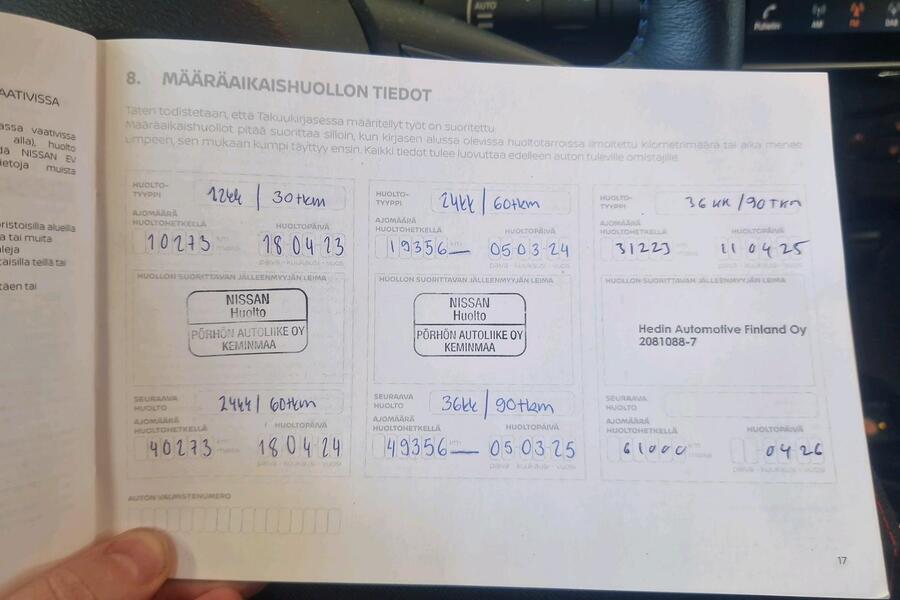 AUTO
Puhelin
AM
FM
DAB
AATIVISSA
assa vaativissa
alla), huolto
dä NISSAN EV
ietoja muista
oristoisilla alueilla
a tai muita
aleja
taisilla teillä tai
täen tai
8. MÄÄRÄAIKAISHUOLLON TIEDOT
Täten todistetaan, että Takuukirjasessa määritellyt työt on suoritettu
Määräaikaishuollot pitää suorittaa silloin, kun kirjasen alussa olevissa huoltotarroissa ilmoitettu kilometrimäärä tai aika menee
umpeen, sen mukaan kumpi täyttyy ensin. Kaikki tiedot tulee luovuttaa edelleen auton tuleville omistajille.
HUOLTO-
TYYPPI
12kk / 30tkm
AJOMÄÄRÄ
HUOLTOHETKELLÄ
HUOLTOPÄIVÄ
10273 km
18 04 23
päivä - kuukausi - vuosi
HUOLLON SUORITTAVAN JÄLLEENMYYJÄN LEIMA
NISSAN
Huolto
PÖRHÖN AUTOLIIKE OY
KEMINMAA
SEURAAVA
HUOLTO
24kk / 60tkm
AJOMÄÄRÄ
HUOLTOHETKELLÄ
HUOLTOPÄIVÄ
40273 km
18 04 24
päivä - kuukausi - vuosi
HUOLTO-
TYYPPI
24kk / 60tkm
AJOMÄÄRÄ
HUOLTOHETKELLÄ
HUOLTOPÄIVÄ
19356 km
05 03 24
päivä - kuukausi - vuosi
HUOLLON SUORITTAVAN JÄLLEENMYYJÄN LEIMA
NISSAN
Huolto
PÖRHÖN AUTOLIIKE OY
KEMINMAA
SEURAAVA
HUOLTO
36kk / 90tkm
AJOMÄÄRÄ
HUOLTOHETKELLÄ
HUOLTOPÄIVÄ
49356 km
05 03 25
päivä - kuukausi - vuosi
HUOLTO-
TYYPPI
36 kk / 90 tkm
AJOMÄÄRÄ
HUOLTOHETKELLÄ
HUOLTOPÄIVÄ
31223
11 04 25
päivä - kuukausi - vuosi
HUOLLON SUORITTAVAN JÄLLEENMYYJÄN LEIMA
Hedin Automotive Finland Oy
2081088-7
SEURAAVA
HUOLTO
AJOMÄÄRÄ
HUOLTOHETKELLÄ
HUOLTOPÄIVÄ
61000
04 26
päivä - kuukausi - vuosi
AUTON VALMISTENUMERO
17